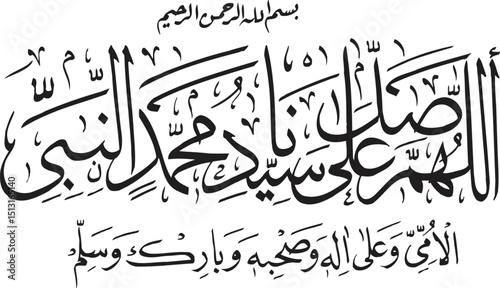 بسم الله الرحمن الرحيم
اللّٰهُمَّ صَلِّ عَلَى سَيِّدِنَا مُحَمَّدٍ النَّبِيِّ
الْأُمِّيِّ وَعَلَى اٰلِهِ وَصَحْبِهِ وَبَارِكْ وَسَلِّمْ